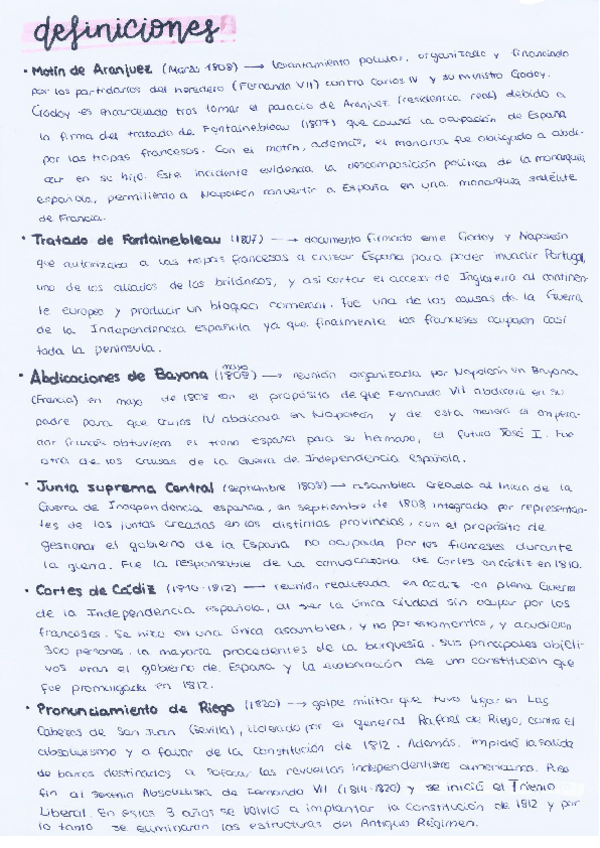 definiciones
· Motín de Aranjuez (Marzo 1808) → levantamiento popular, organizado y financiado
por los partidarios del heredero (Fernando VII) contra Carlos IV y su ministro Godoy.
Godoy es encarcelado tras tomar el palacio de Aranjuez (residencia real) debido a
la firma del tratado de Fontainebleau (1807) que causó la ocupación de España
por las tropas francesas. Con el motín, además, el monarca fue obligado a abdi-
car en su hijo. Este incidente evidencia la descomposición política de la monarquía
española, permitiendo a Napoleón convertir a España en una monarquía satélite
de Francia.
· Tratado de Fontainebleau (1807) → documento firmado entre Godoy y Napoleón
que autorizaba a las tropas francesas a cruzar España para poder invadir Portugal,
uno de los aliados de los británicos, y así cortar el acceso de Inglaterra al continen-
te europeo y producir un bloqueo comercial. Fue una de las causas de la Guerra
de la Independencia española ya que finalmente los franceses ocuparon casi
toda la península.
· Abdicaciones de Bayona (mayo 1808) → reunión organizada por Napoleón en Bayona
(Francia) en mayo de 1808 con el propósito de que Fernando VII abdicara en su
padre para que Carlos IV abdicara en Napoleón y de esta manera el empera-
dor francés obtuviera el trono español para su hermano, el futuro José I. Fue
otra de las causas de la Guerra de Independencia española.
· Junta Suprema Central (septiembre 1808) → asamblea creada al inicio de la
Guerra de Independencia española, en septiembre de 1808, integrada por representan-
tes de las juntas creadas en las distintas provincias, con el propósito de
gestionar el gobierno de la España no ocupada por los franceses durante
la guerra. Fue la responsable de la convocatoria de Cortes en Cádiz en 1810.
· Cortes de Cádiz (1810-1812) → reunión realizada en Cádiz en plena Guerra
de la Independencia española, al ser la única ciudad sin ocupar por los
franceses. Se hizo en una única asamblea, y no por estamentos, y acudieron
300 personas, la mayoría procedentes de la burguesía. Sus principales objeti-
vos eran el gobierno de España y la elaboración de una constitución que
fue promulgada en 1812.
· Pronunciamiento de Riego (1820) → golpe militar que tuvo lugar en Las
Cabezas de San Juan (Sevilla), liderado por el general Rafael de Riego, contra el
absolutismo y a favor de la Constitución de 1812. Además, impidió la salida
de barcos destinados a sofocar las revueltas independentistas americanas. Puso
fin al Sexenio Absolutista de Fernando VII (1814-1820) y se inició el Trienio
Liberal. En estos 3 años se volvió a implantar la Constitución de 1812 y por
lo tanto se eliminaron las estructuras del Antiguo Régimen.